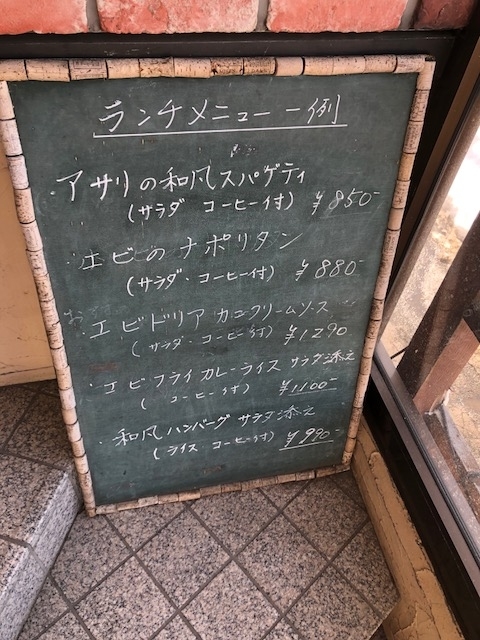 ランチメニュー 一例
・アサリの和風スパゲティ
(サラダ コーヒー付) ¥850-
・エビのナポリタン
(サラダ・コーヒー付) ¥880-
・エビドリア カニクリームソース
(サラダ・コーヒー付) ¥1290
・エビフライカレーライス サラダ添え
( コーヒー付) ¥1100-
・和風ハンバーグ サラダ添え
(ライス コーヒー付) ¥990-